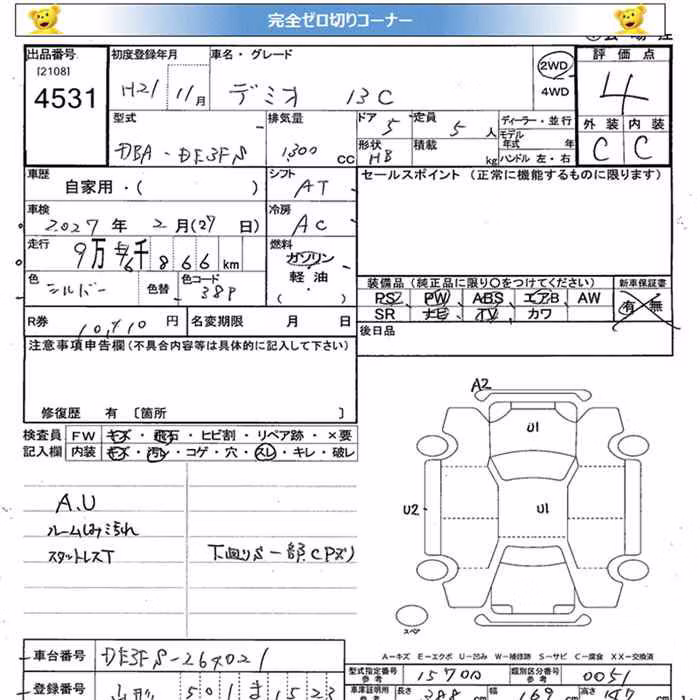 完全ゼロ切りコーナー
出品番号 初度登録年月 車名・グレード 評価点
[2108]
4531 H21 11月 デミオ 13C 2WD 4WD 4
型式 排気量 ドア 5 定員 5人 ディーラー・並行 外装 内装
DBA-DE3FS 1,300 CC 形状 HB 積載 kg モデル年式 年式 ハンドル 左・右 C C
車歴 自家用・( ) シフト AT セールスポイント (正常に機能するものに限ります)
車検 2027年 2月(27日) 冷房 AC
走行 9万 6千 866 km 燃料 ガソリン 軽油・( )
色 シルバー 色替 色コード 38P
装備品 (純正品に限り○をつけてください) 新車保証書
PS PW ABS エアB AW 有・無
SR ナビ TV カワ
R券 10,410円 名変期限 月 日 後日品
注意事項申告欄(不具合内容等は具体的に記入して下さい)
修復歴 有 〔箇所 〕
検査員 FW キズ・飛石・ヒビ割・リペア跡・×要
記入欄 内装 キズ・汚レ・コゲ・穴・スレ・キレ・破レ
A2
U1
U2
U1
A.U
ルームしみ汚れ
スタットレスT
下回りS 一部CPズリ
スペア
A-キズ E-エクボ U-凹み W-補修跡 S-サビ C-腐食 XX-交換済
車台番号 DE3FS-267021
型式指定番号 参考 15700 類別区分番号 参考 0051
登録番号 501 ま 1523
車庫証明用 参考 長さ 388 幅 169 高さ